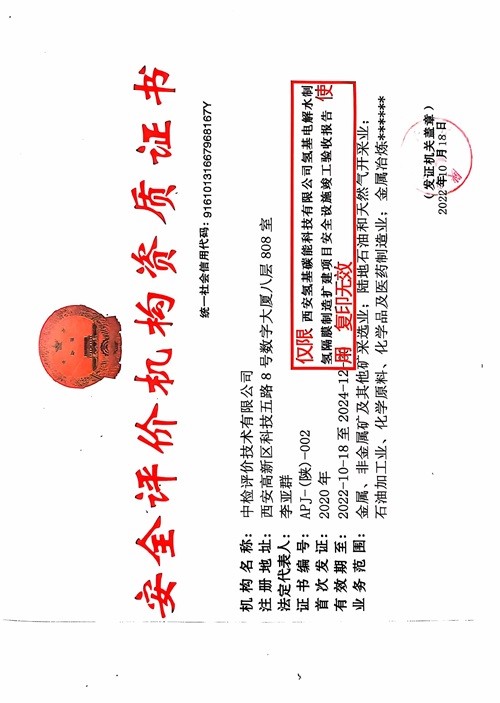 安全评价机构资质证书
统一社会信用代码：91610131667968167Y
机构名称：中检评价技术有限公司
注册地址：西安高新区科技五路8号数字大厦八层808室
法定代表人：李亚群
证书编号：APJ-(陕)-002
首次发证：2020年
有效期至：2022-10-18至2024-12-
业务范围：金属、非金属矿及其他矿采选业；陆地石油和天然气开采业；
石油加工业、化学原料、化学品及医药制造业；金属冶炼******
仅限 西安氢基碳能科技有限公司氢基电解水制
氢隔膜制造扩建项目安全设施竣工验收报告 使
用 复印无效
（发证机关盖章）
2022年10月18日